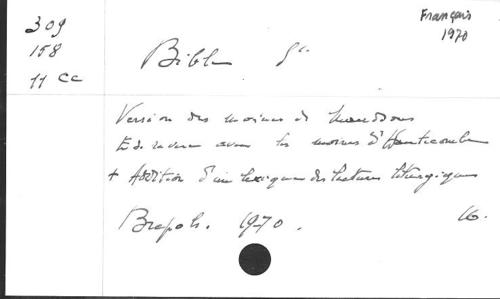 Français
1970
309
158
11 cc
Bible Ste
Version des moines de Maredsous
Ed. revue avec les moines d'Hautecombe
+ Addition d'un lexique des lectures liturgiques
Brepols. 1970. 16.